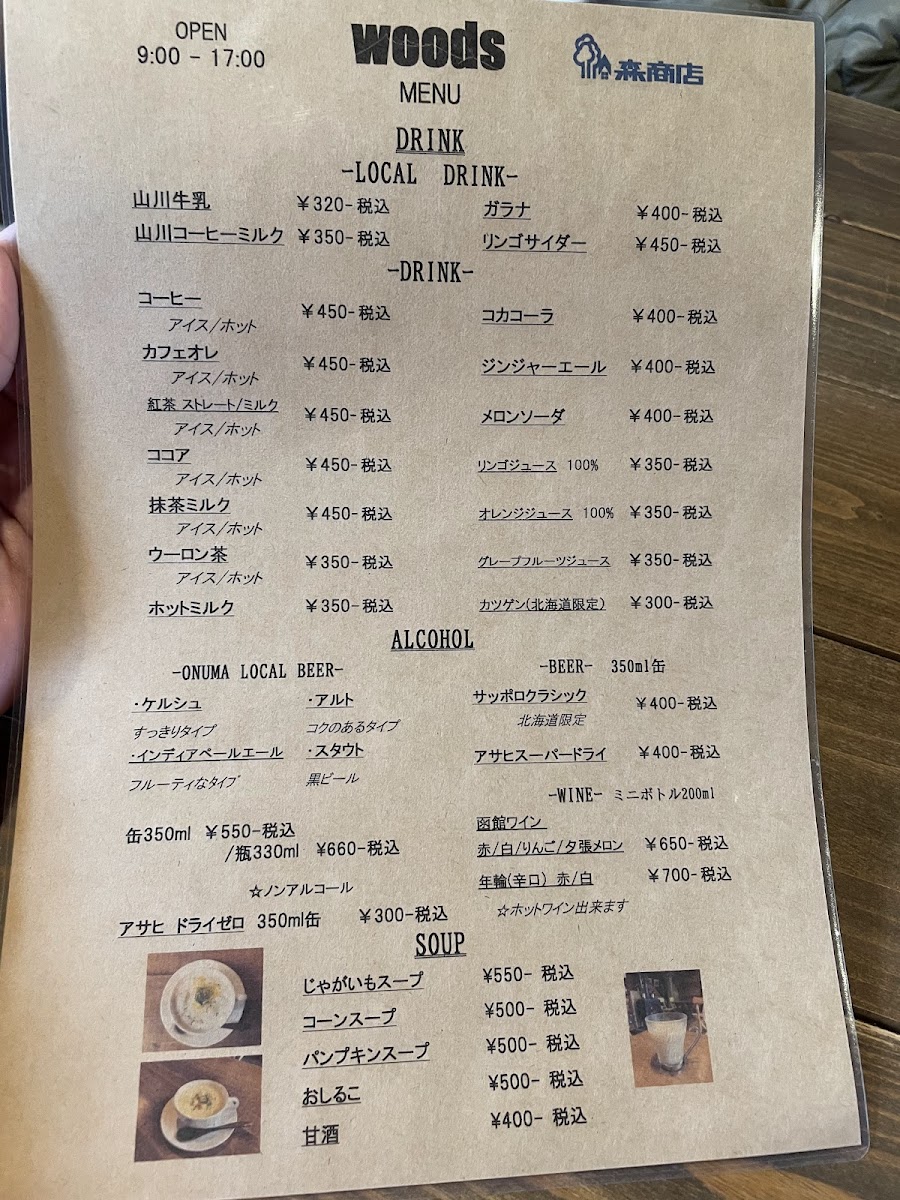 OPEN
9:00 - 17:00
woods
森商店
MENU
DRINK
-LOCAL DRINK-
山川牛乳 ¥320-税込
ガラナ ¥400-税込
山川コーヒーミルク ¥350-税込
リンゴサイダー ¥450-税込
-DRINK-
コーヒー ¥450-税込
アイス/ホット
コカコーラ ¥400-税込
カフェオレ ¥450-税込
アイス/ホット
ジンジャーエール ¥400-税込
紅茶 ストレート/ミルク ¥450-税込
アイス/ホット
メロンソーダ ¥400-税込
ココア ¥450-税込
アイス/ホット
リンゴジュース 100% ¥350-税込
抹茶ミルク ¥450-税込
アイス/ホット
オレンジジュース 100% ¥350-税込
ウーロン茶 ¥350-税込
アイス/ホット
グレープフルーツジュース ¥350-税込
ホットミルク ¥350-税込
カツゲン(北海道限定) ¥300-税込
ALCOHOL
-ONUMA LOCAL BEER-
・ケルシュ ・アルト
すっきりタイプ コクのあるタイプ
・インディアペールエール ・スタウト
フルーティなタイプ 黒ビール
缶350ml ¥550-税込
/瓶330ml ¥660-税込
☆ノンアルコール
アサヒ ドライゼロ 350ml缶 ¥300-税込
-BEER- 350ml缶
サッポロクラシック ¥400-税込
北海道限定
アサヒスーパードライ ¥400-税込
-WINE- ミニボトル200ml
函館ワイン
赤/白/りんご/夕張メロン ¥650-税込
年輪(辛口) 赤/白 ¥700-税込
☆ホットワイン出来ます
SOUP
じゃがいもスープ ¥550- 税込
コーンスープ ¥500- 税込
パンプキンスープ ¥500- 税込
おしるこ ¥500- 税込
甘酒 ¥400- 税込